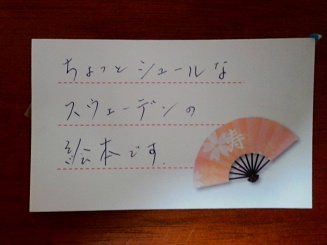 ちょっとシュールな
スウェーデンの
絵本です.
寿